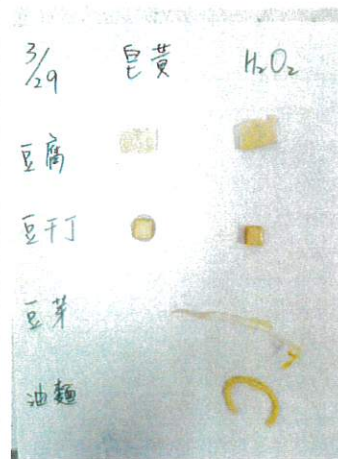 3/29 皂黃 H₂O₂
豆腐
豆干丁
豆芽
油麵